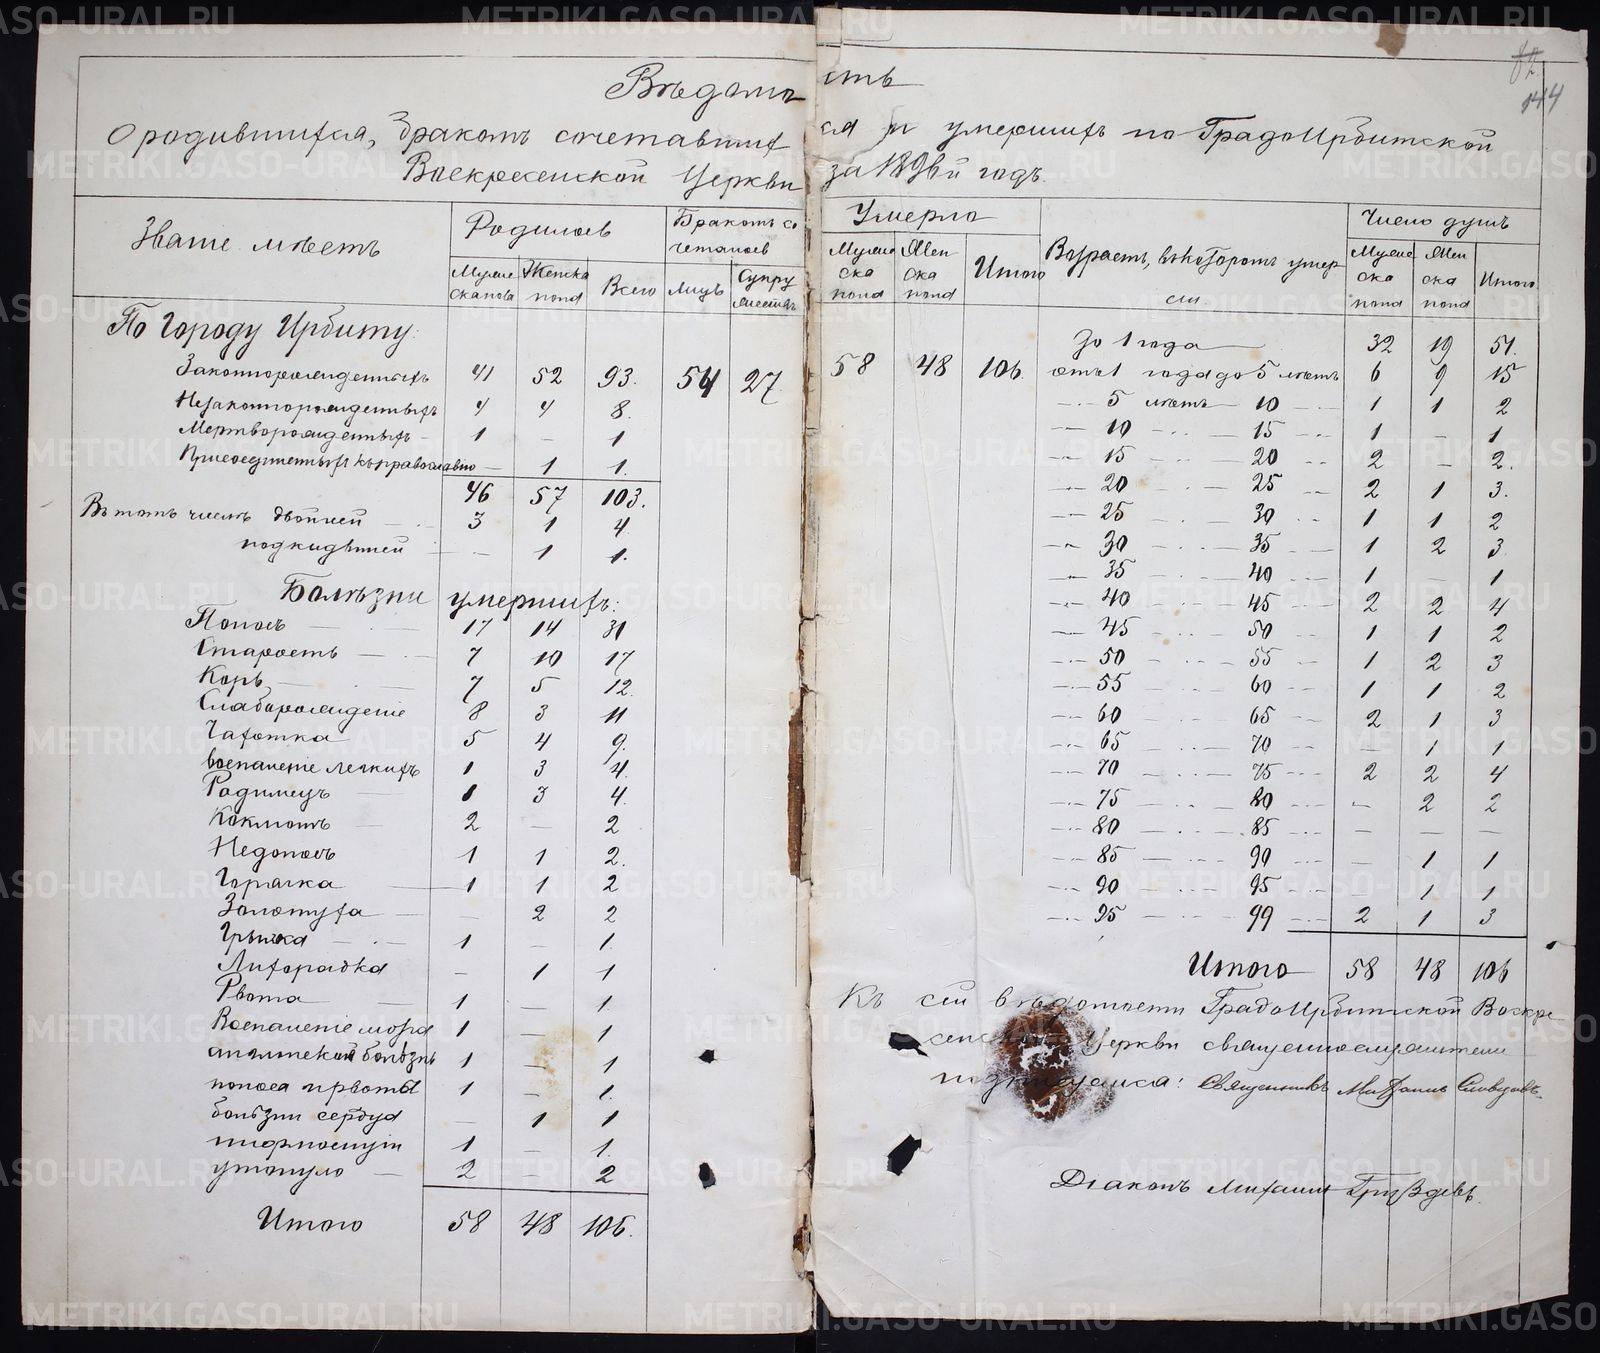 Вѣдомость
О родившихся, бракомъ сочетавшихся и умершихъ по ГрадоИрбитской
Воскресенской Церкви за 1896й годъ.
144
Званіе мѣстъ
Родилось
Мужескаго пола
Женска пола
Всего
Бракомъ сочеталось
Лицъ
Супружествъ
Умерло
Мужеска пола
Женска пола
Итого
Возрастъ, въ которомъ умерли
Число душъ
Мужеска пола
Женска пола
Итого
По Городу Ирбиту:
Законнорожденныхъ 41 52 93. 54 27. 58 48 106
Незаконнорожденныхъ 4 4 8
Мертворожденныхъ 1 — 1
Присоединенныхъ къ православію — 1 1.
46 57 103.
Въ томъ числѣ двойней 3 1 4
подкидышей — 1 1.
Болѣзни умершихъ:
Поносъ 17 14 31
Старость 7 10 17
Корь 7 5 12
Слаборожденіе 8 3 11
Чахотка 5 4 9.
воспаленіе легкихъ 1 3 4
Родимецъ 1 3 4
Коклюшъ 2 — 2
Недоносъ 1 1 2.
Горячка 1 1 2
Золотуха — 2 2
Грыжа 1 — 1.
Лихорадка — 1 1
Рвота 1 — 1.
Воспаленіе мозга 1 — 1
англійская болѣзнь 1 — 1
поноса и рвоты 1 — 1.
болѣзни сердца — 1 1
1 — 1.
утонуло 2 — 2
Итого 58 48 106.
До 1 года 32 19 51.
отъ 1 года до 5 лѣтъ 6 9 15
5 лѣтъ 10 1 1 2
10 15 1 — 1
15 20 2 — 2.
20 25 2 1 3.
25 30 1 1 2
30 35 1 2 3
35 40 1 — 1
40 45 2 2 4
45 50 1 1 2
50 55 1 2 3
55 60 1 1 2
60 65 2 1 3
65 70 — 1 1
70 75 2 2 4
75 80 — 2 2
80 85 — — —
85 90 — 1 1
90 95 — 1 1
95 99 2 1 3
Итого 58 48 106
Къ сей вѣдомости ГрадоИрбитской Воскре
сенской Церкви священнослужители
подписуемся: Священникъ Михаилъ Словцовъ.
Діаконъ Михаилъ Груздевъ.
METRIKI.GASO-URAL.RU